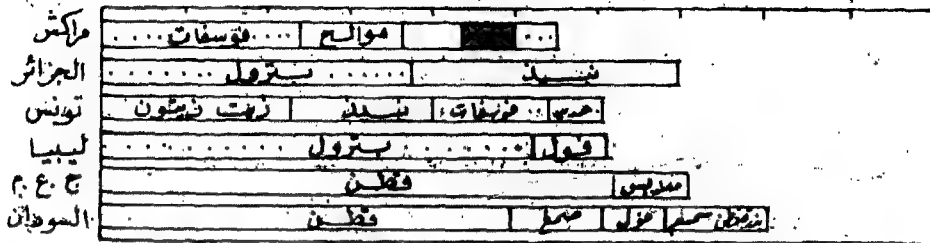 مراكش فوسفات موالح
الجزائر بترول نبيذ
تونس زيت زيتون نبيذ فوسفات
ليبيا بترول فول
ج.ع.م قطن ملابس
السودان قطن صمغ فول سمسم